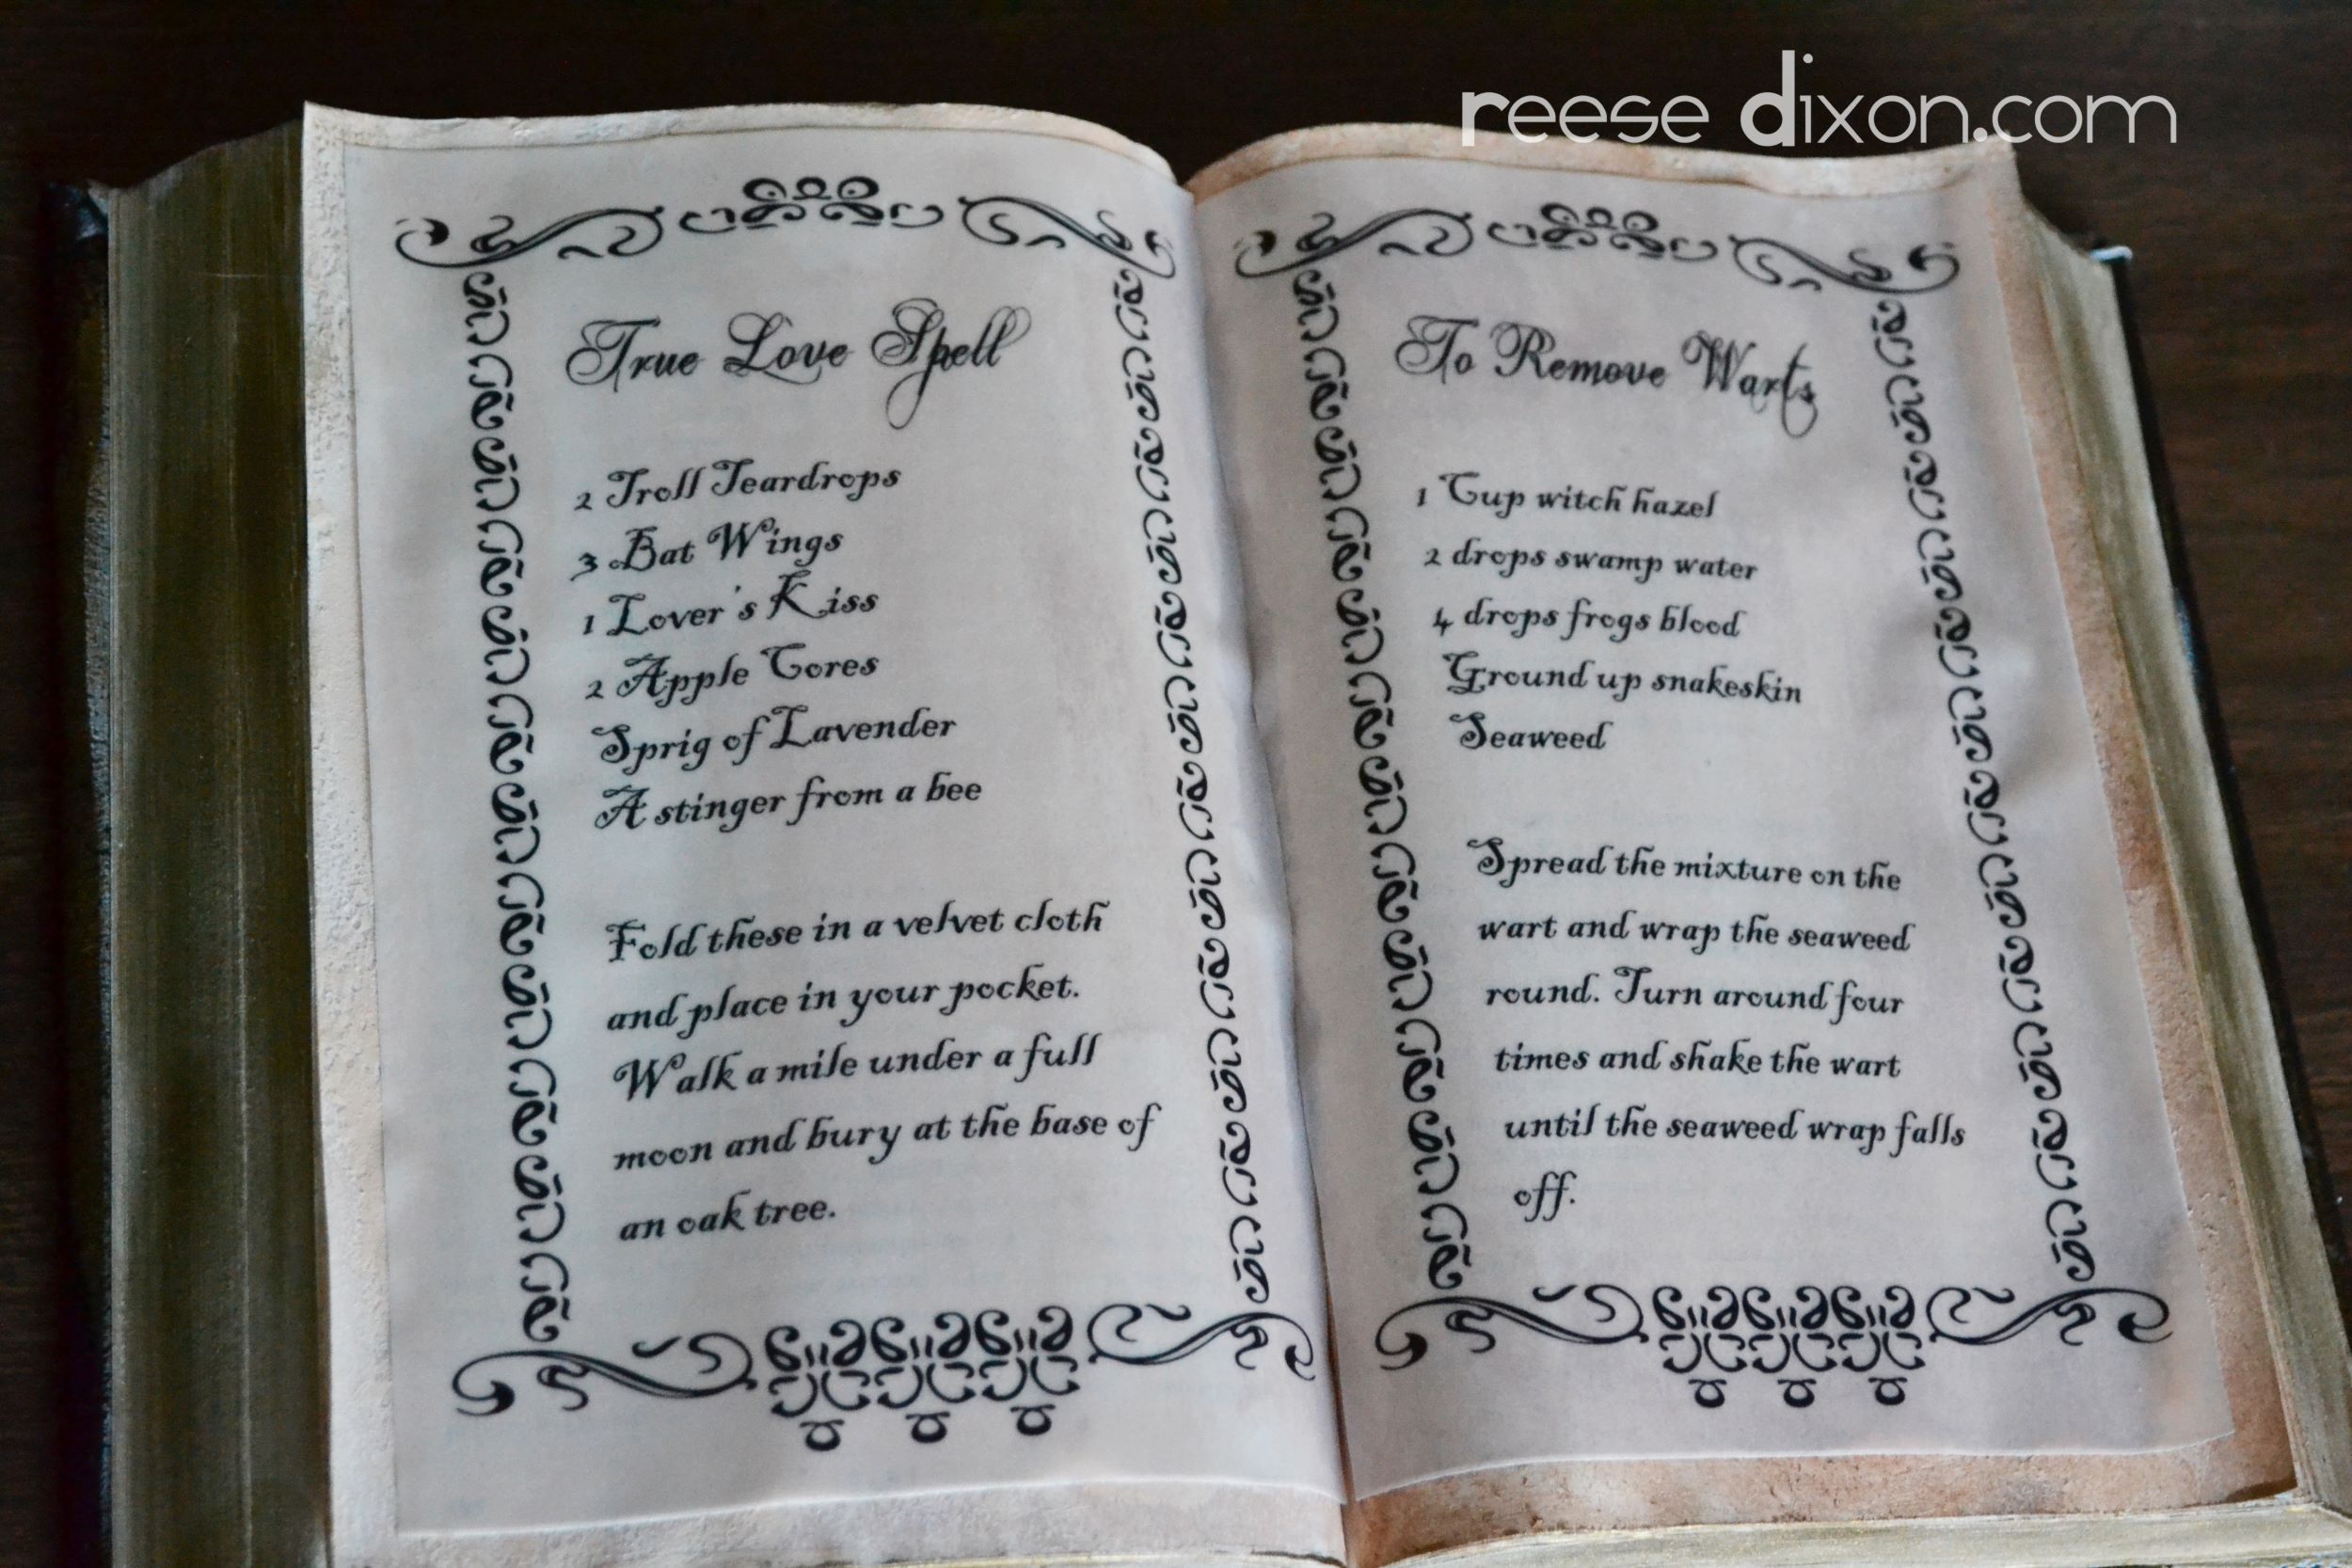 reese dixon.com
True Love Spell
2 Troll Teardrops
3 Bat Wings
1 Lover's Kiss
2 Apple Cores
Sprig of Lavender
A stinger from a bee
Fold these in a velvet cloth
and place in your pocket.
Walk a mile under a full
moon and bury at the base of
an oak tree.
To Remove Warts
1 Cup witch hazel
2 drops swamp water
4 drops frogs blood
Ground up snakeskin
Seaweed
Spread the mixture on the
wart and wrap the seaweed
round. Turn around four
times and shake the wart
until the seaweed wrap falls
off.